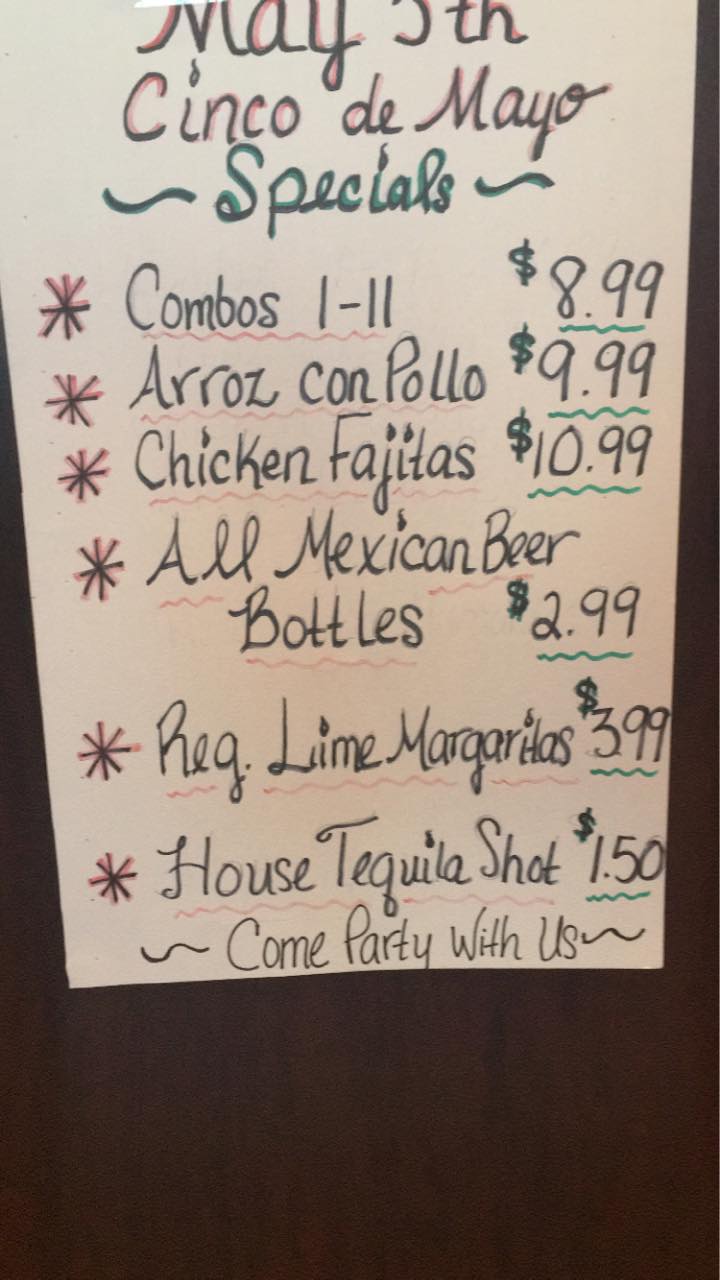 May 5th
Cinco de Mayo
~ Specials ~
* Combos 1-11 $8.99
* Arroz con Pollo $9.99
* Chicken Fajitas $10.99
* All Mexican Beer
Bottles $2.99
* Reg. Lime Margaritas $3.99
* House Tequila Shot $1.50
~ Come Party With Us ~